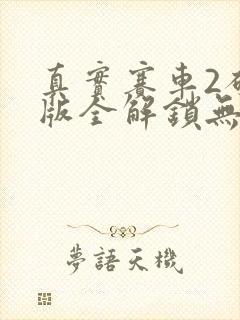 真實賽車2
版全解鎖無
夢語天機